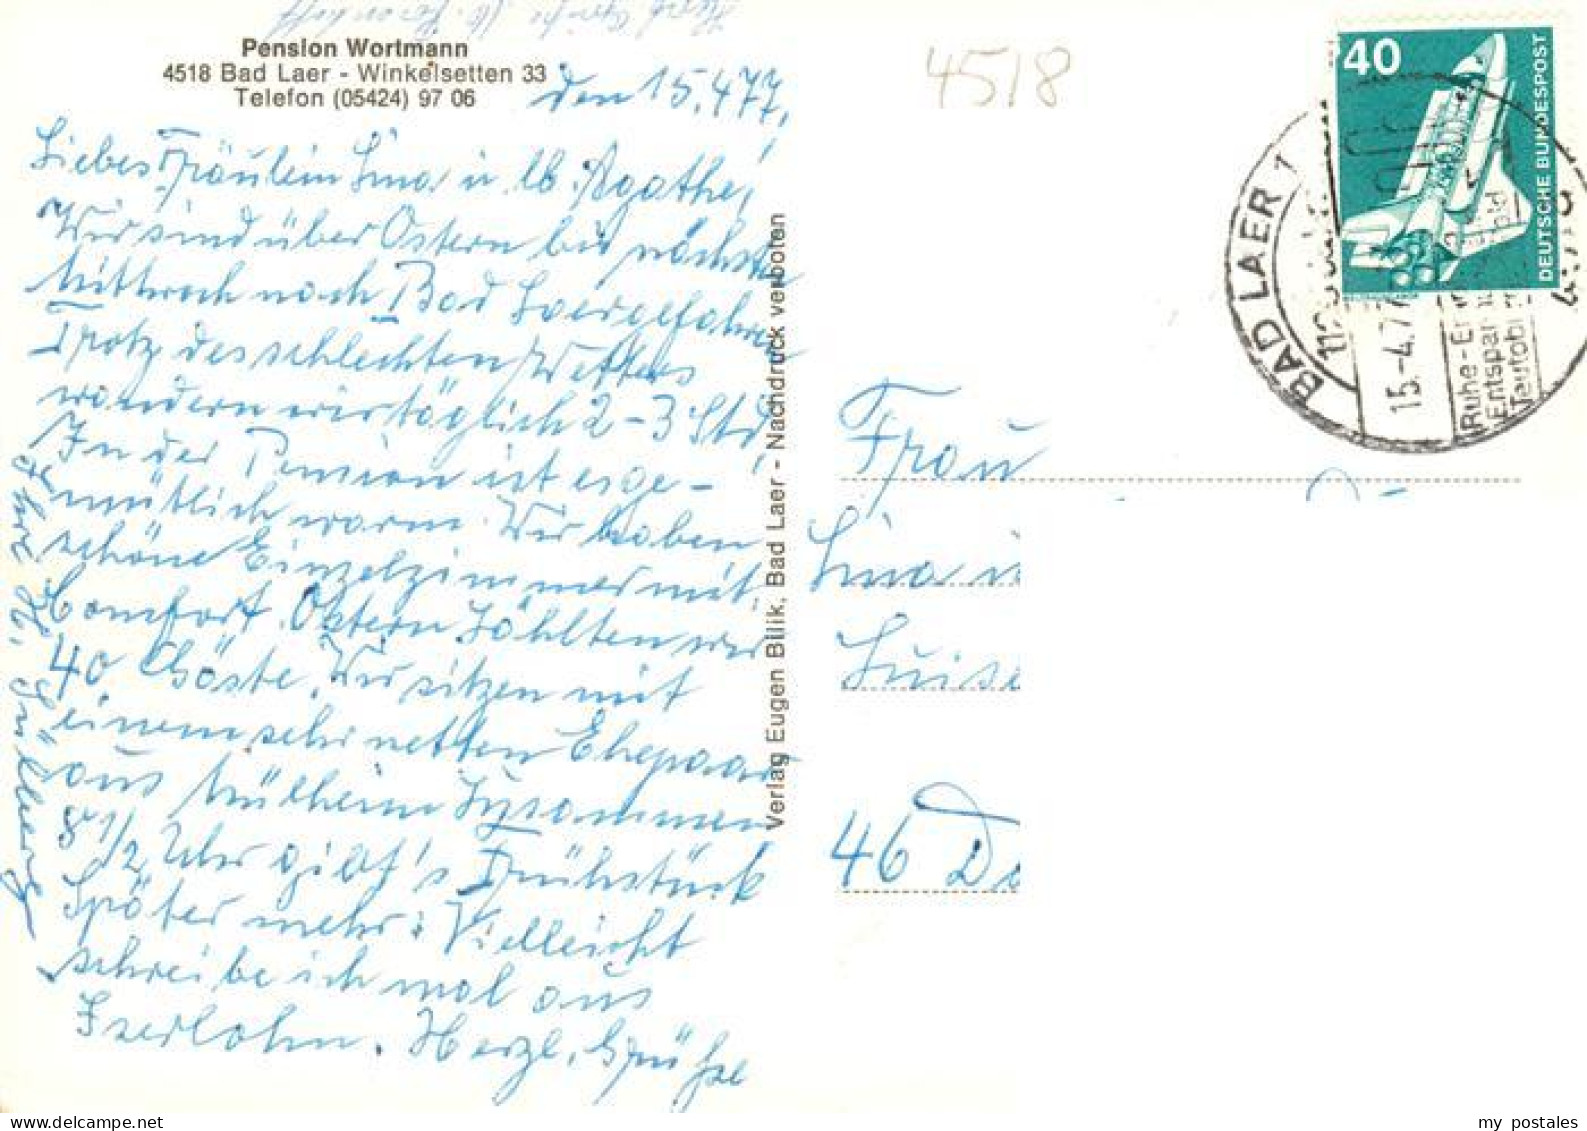 Pension Wortmann
4518 Bad Laer - Winkelsetten 33
Telefon (05424) 97 06
den 15.4.77.
Liebes Fräulein Lina u. lb. Agathe!
Wir sind über Ostern bis nächsten
Mittwoch nach Bad Laer gefahren
Trotz des schlechten Wetters
wandern wir täglich 2-3 Std.
In der Pension ist es ge-
mütlich warm. Wir haben
schöne Einzelzimmer mit
Comfort. Ostern zählten wir
40 Gäste. Wir sitzen mit
einem sehr netten Ehepaar
aus Mülheim zusammen
8 1/2 Uhr gibt's Frühstück
Später mehr. Vielleicht
schreibe ich mal aus
Iserlohn. Herzl. Grüße
Verlag Eugen Bilik, Bad Laer - Nachdruck verboten
4518
40
DEUTSCHE BUNDESPOST
BAD LAER 1
15.-4.77
Ruhe-
Entspan
Teutob
Frau
Lina u
Luise
46 Do
my postales
www.delcampe.net